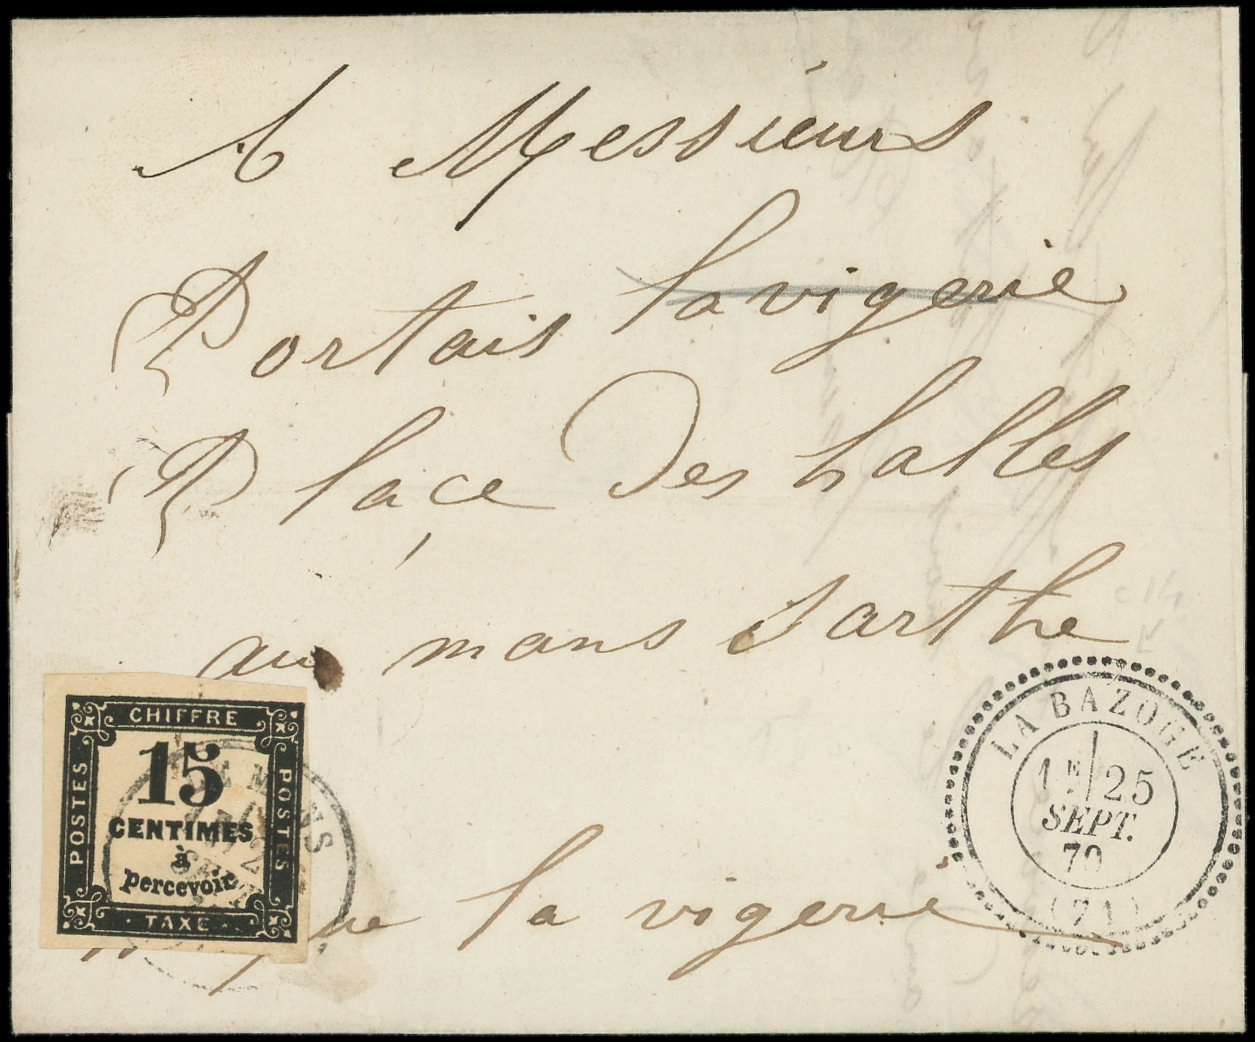 A Messieurs
Portais lavigerie
Plaçe Des halles
au mans Sarthe
la vigerie
CHIFFRE
POSTES
15
CENTIMES
à
percevoir
POSTES
TAXE
LE MANS
LA BAZOGE
1E 25
SEPT.
70
(71)